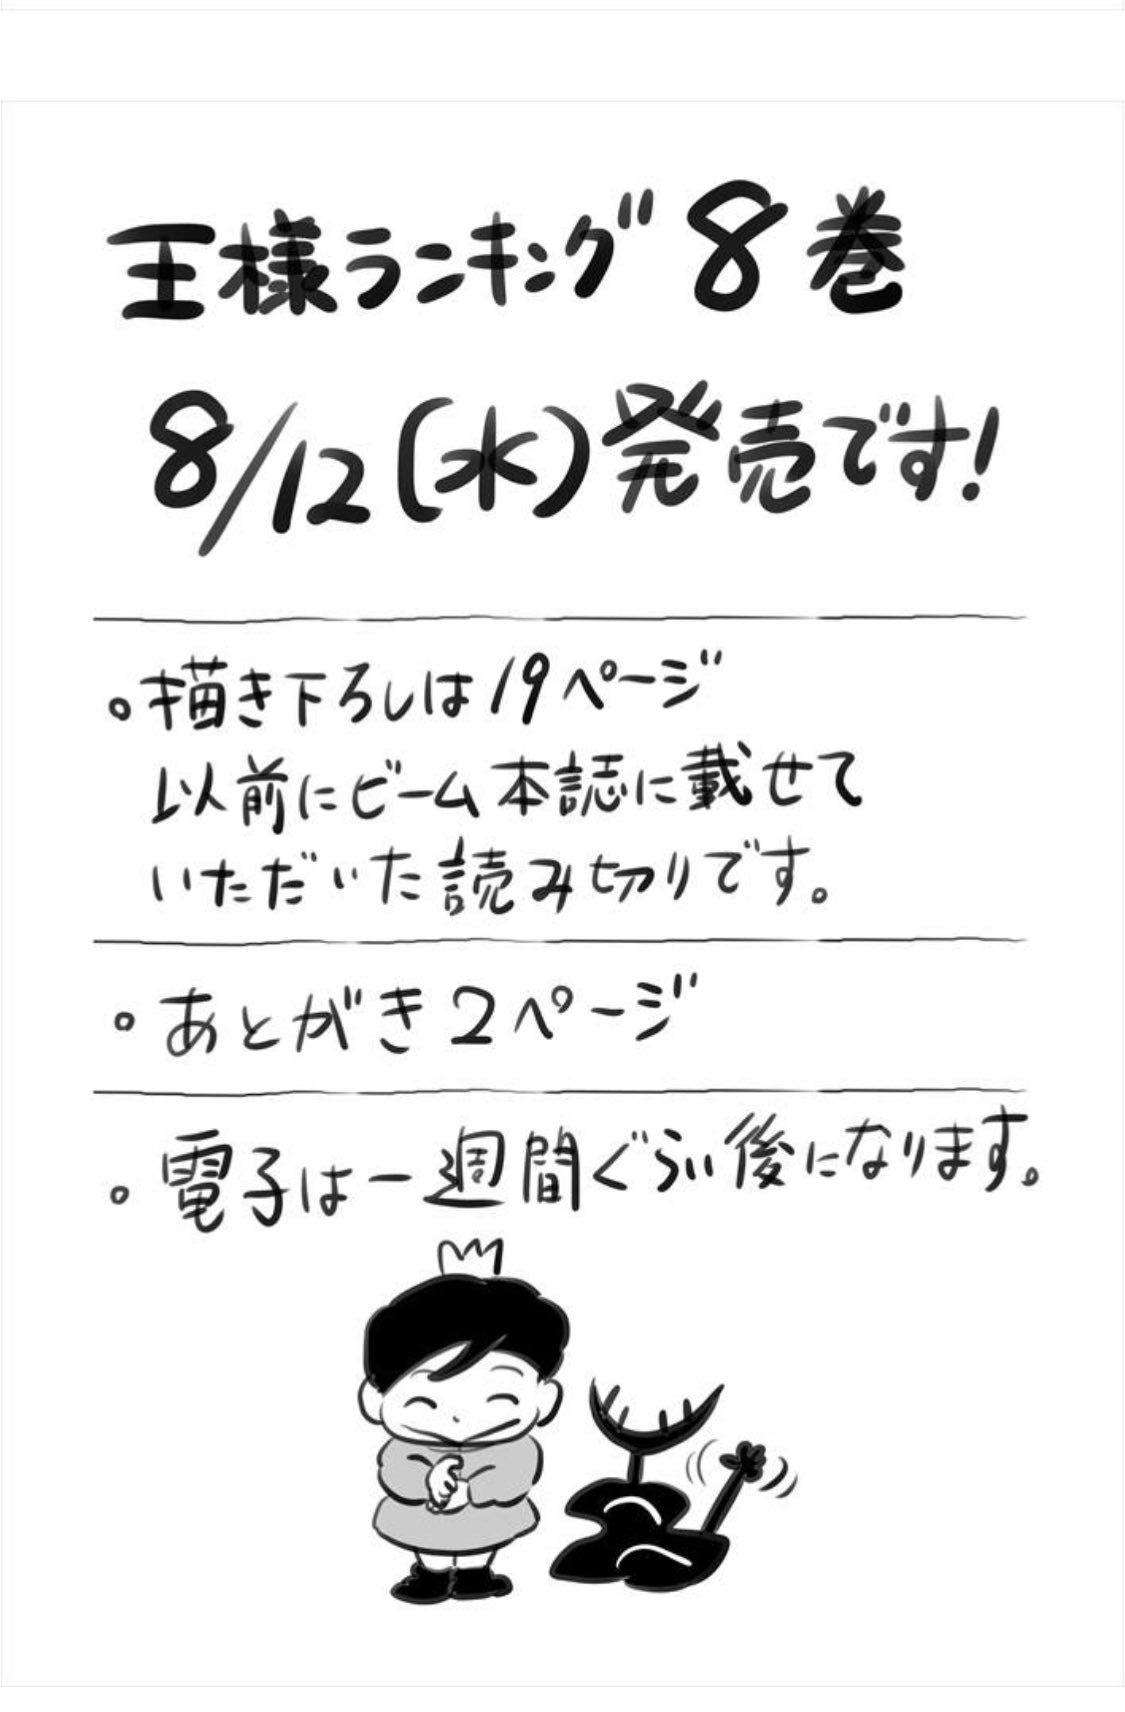 王様ランキング8巻
8/12(水)発売です!
。描き下ろしは19ページ
以前にビーム本誌に載せて
いただいた読み切りです。
。あとがき2ページ
。電子は一週間ぐらい後になります。